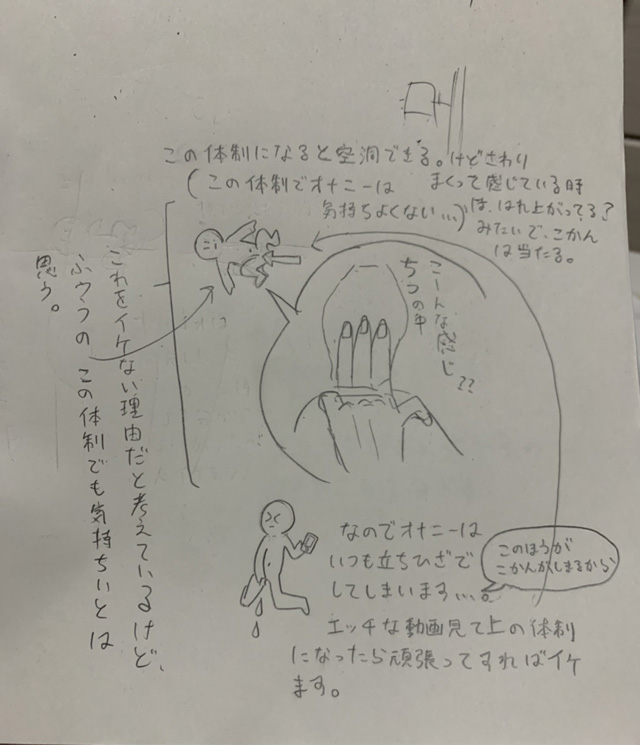 この体制になると空洞できる。けどさわり
まくって感じている時
は、はれ上がってる?
みたいで、こかん
は当たる。
(この体制でオナニーは
気持ちよくない…)
こーんな感じ??
ちつの中
これをイケない理由だと考えているけど、
ふつうの この体制でも気持ちいとは
思う。
なのでオナニーは
いつも立ちひざで
してしまいます…。
このほうが
こかんがしまるから
エッチな動画見て上の体制
になったら頑張ってすればイケ
ます。